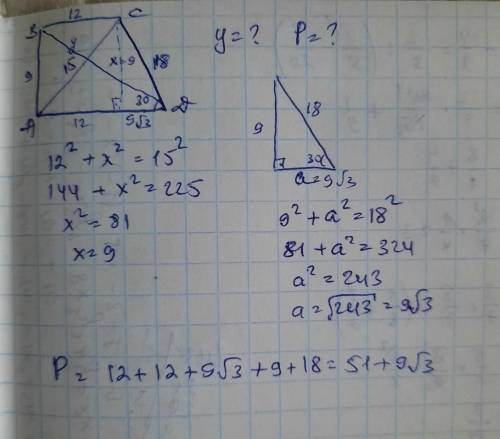 12
B C
y = ? P = ?
9 8 15 x=9 18
30
A 12 E 9√3 D
9 18
30
a = 9√3
12² + x² = 15²
144 + x² = 225
x² = 81
x = 9
9² + a² = 18²
81 + a² = 324
a² = 243
a = √243 = 9√3
P = 12 + 12 + 9√3 + 9 + 18 = 51 + 9√3